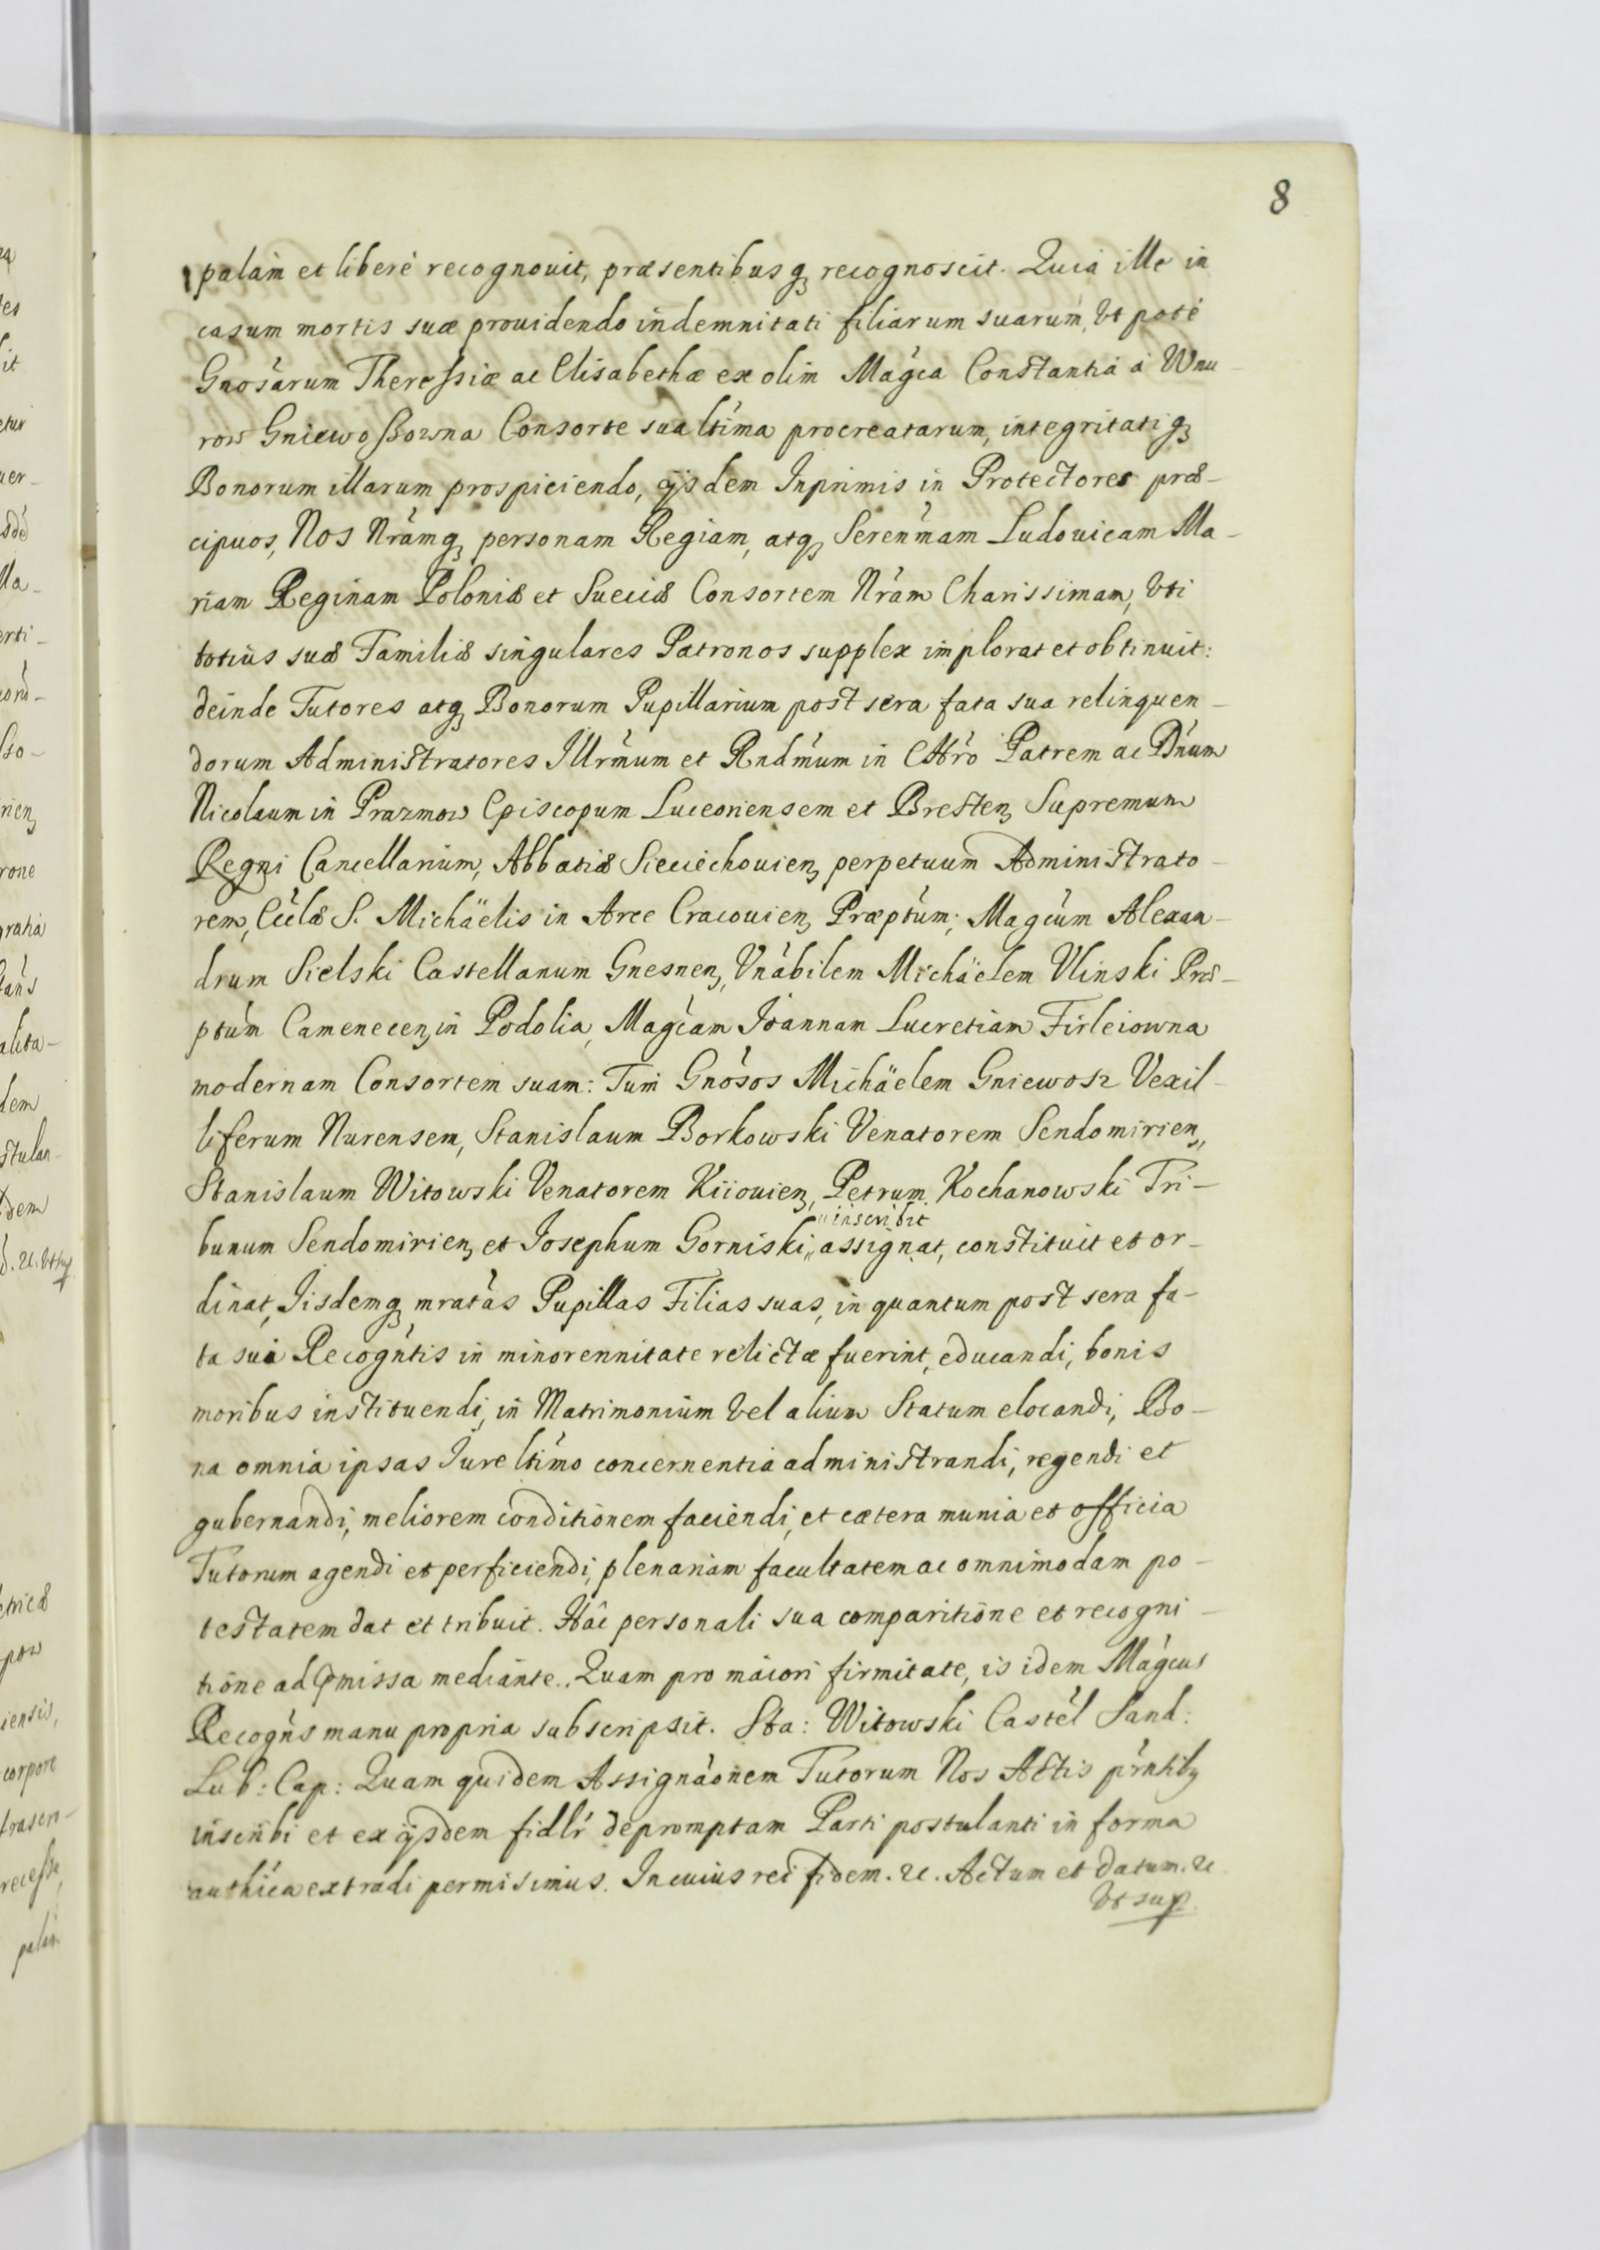 8
palàm et liberè recognouit, præsentibusq; recognoscit. Quia ille in
casum mortis suæ prouidendo indemnitati filiarum suarum, Vt potè
Gnosàrum Theressiæ ac Elisabethæ ex olim Magca Constantia à Wnu-
row Gniewoßowna Consorte sua ltima procreatarum, integritatiq;
Bonorum illarum prospiciendo, ijsdem Inprimis in Protectores præ-
cipuos, Nos Nràmq; personam Regiam, atq; Serenmam Ludouicam Ma-
riam Reginam Poloniæ et Sueciæ Consortem Nràm Charissimam, Vti
totius suæ Familiæ singulares Patronos supplex implorat et obtinuit:
deinde Tutores atq; Bonorum Pupillarium post sera fata sua relinquen-
dorum Administratores Illrmum et Rndmum in Chro Patrem ac Dnum
Nicolaum in Prazmow Episcopum Luceoriensem et Bresten; Supremum
Regni Cancellarium, Abbatiæ Sieciechouien; perpetuum Administrato-
rem, Eclæ S. Michäelis in Arce Cracouien; Præptum; Magcum Alexan-
drum Sielski Castellanum Gnesnen; Vnàbilem Michäelem Vlinski Præ-
ptum Camenecen; in Podolia, Magcam Ioannam Lucretiam Firleiowna
modernam Consortem suam: Tum Gnòsos Michäelem Gniewosz Vexil-
liferum Nurensem, Stanislaum Borkowski Venatorem Sendomirien;,
Stanislaum Witowski Venatorem Kiiouien; Petrum Kochanowski Tri-
inscribit
bunum Sendomirien; et Iosephum Gorniski, assignat, constituit et or-
dinat, Iisdemq; mratàs Pupillas Filias suas, in quantum post sera fa-
ta sua Recogntis in minorennitate relictæ fuerint, educandi, bonis
moribus instituendi, in Matrimonium vel alium Statum elocandi, Bo-
na omnia ipsas Iure ltimo concernentia administrandi, regendi et
gubernandi, meliorem conditionem faciendi, et cætera munia et officia
Tutorum agendi et perficiendi, plenariam facultatem ac omnimodam po-
testatem dat et tribuit. Hâc personali sua comparitione et recogni-
tione ad pmissa mediante. Quam pro maiori firmitate, is idem Màgcus
Recogns manu propria subscripsit. Sta: Witowski Castèl Sand:
Lub: Cap: Quam quidem Assignàonem Tutorum Nos Actis prntib;
inscribi et ex ijsdem fidlr depromptam Parti postulanti in forma
authica extradi permisimus. In cuius rei fidem. &c. Actum et datum. &c
Vt sup.